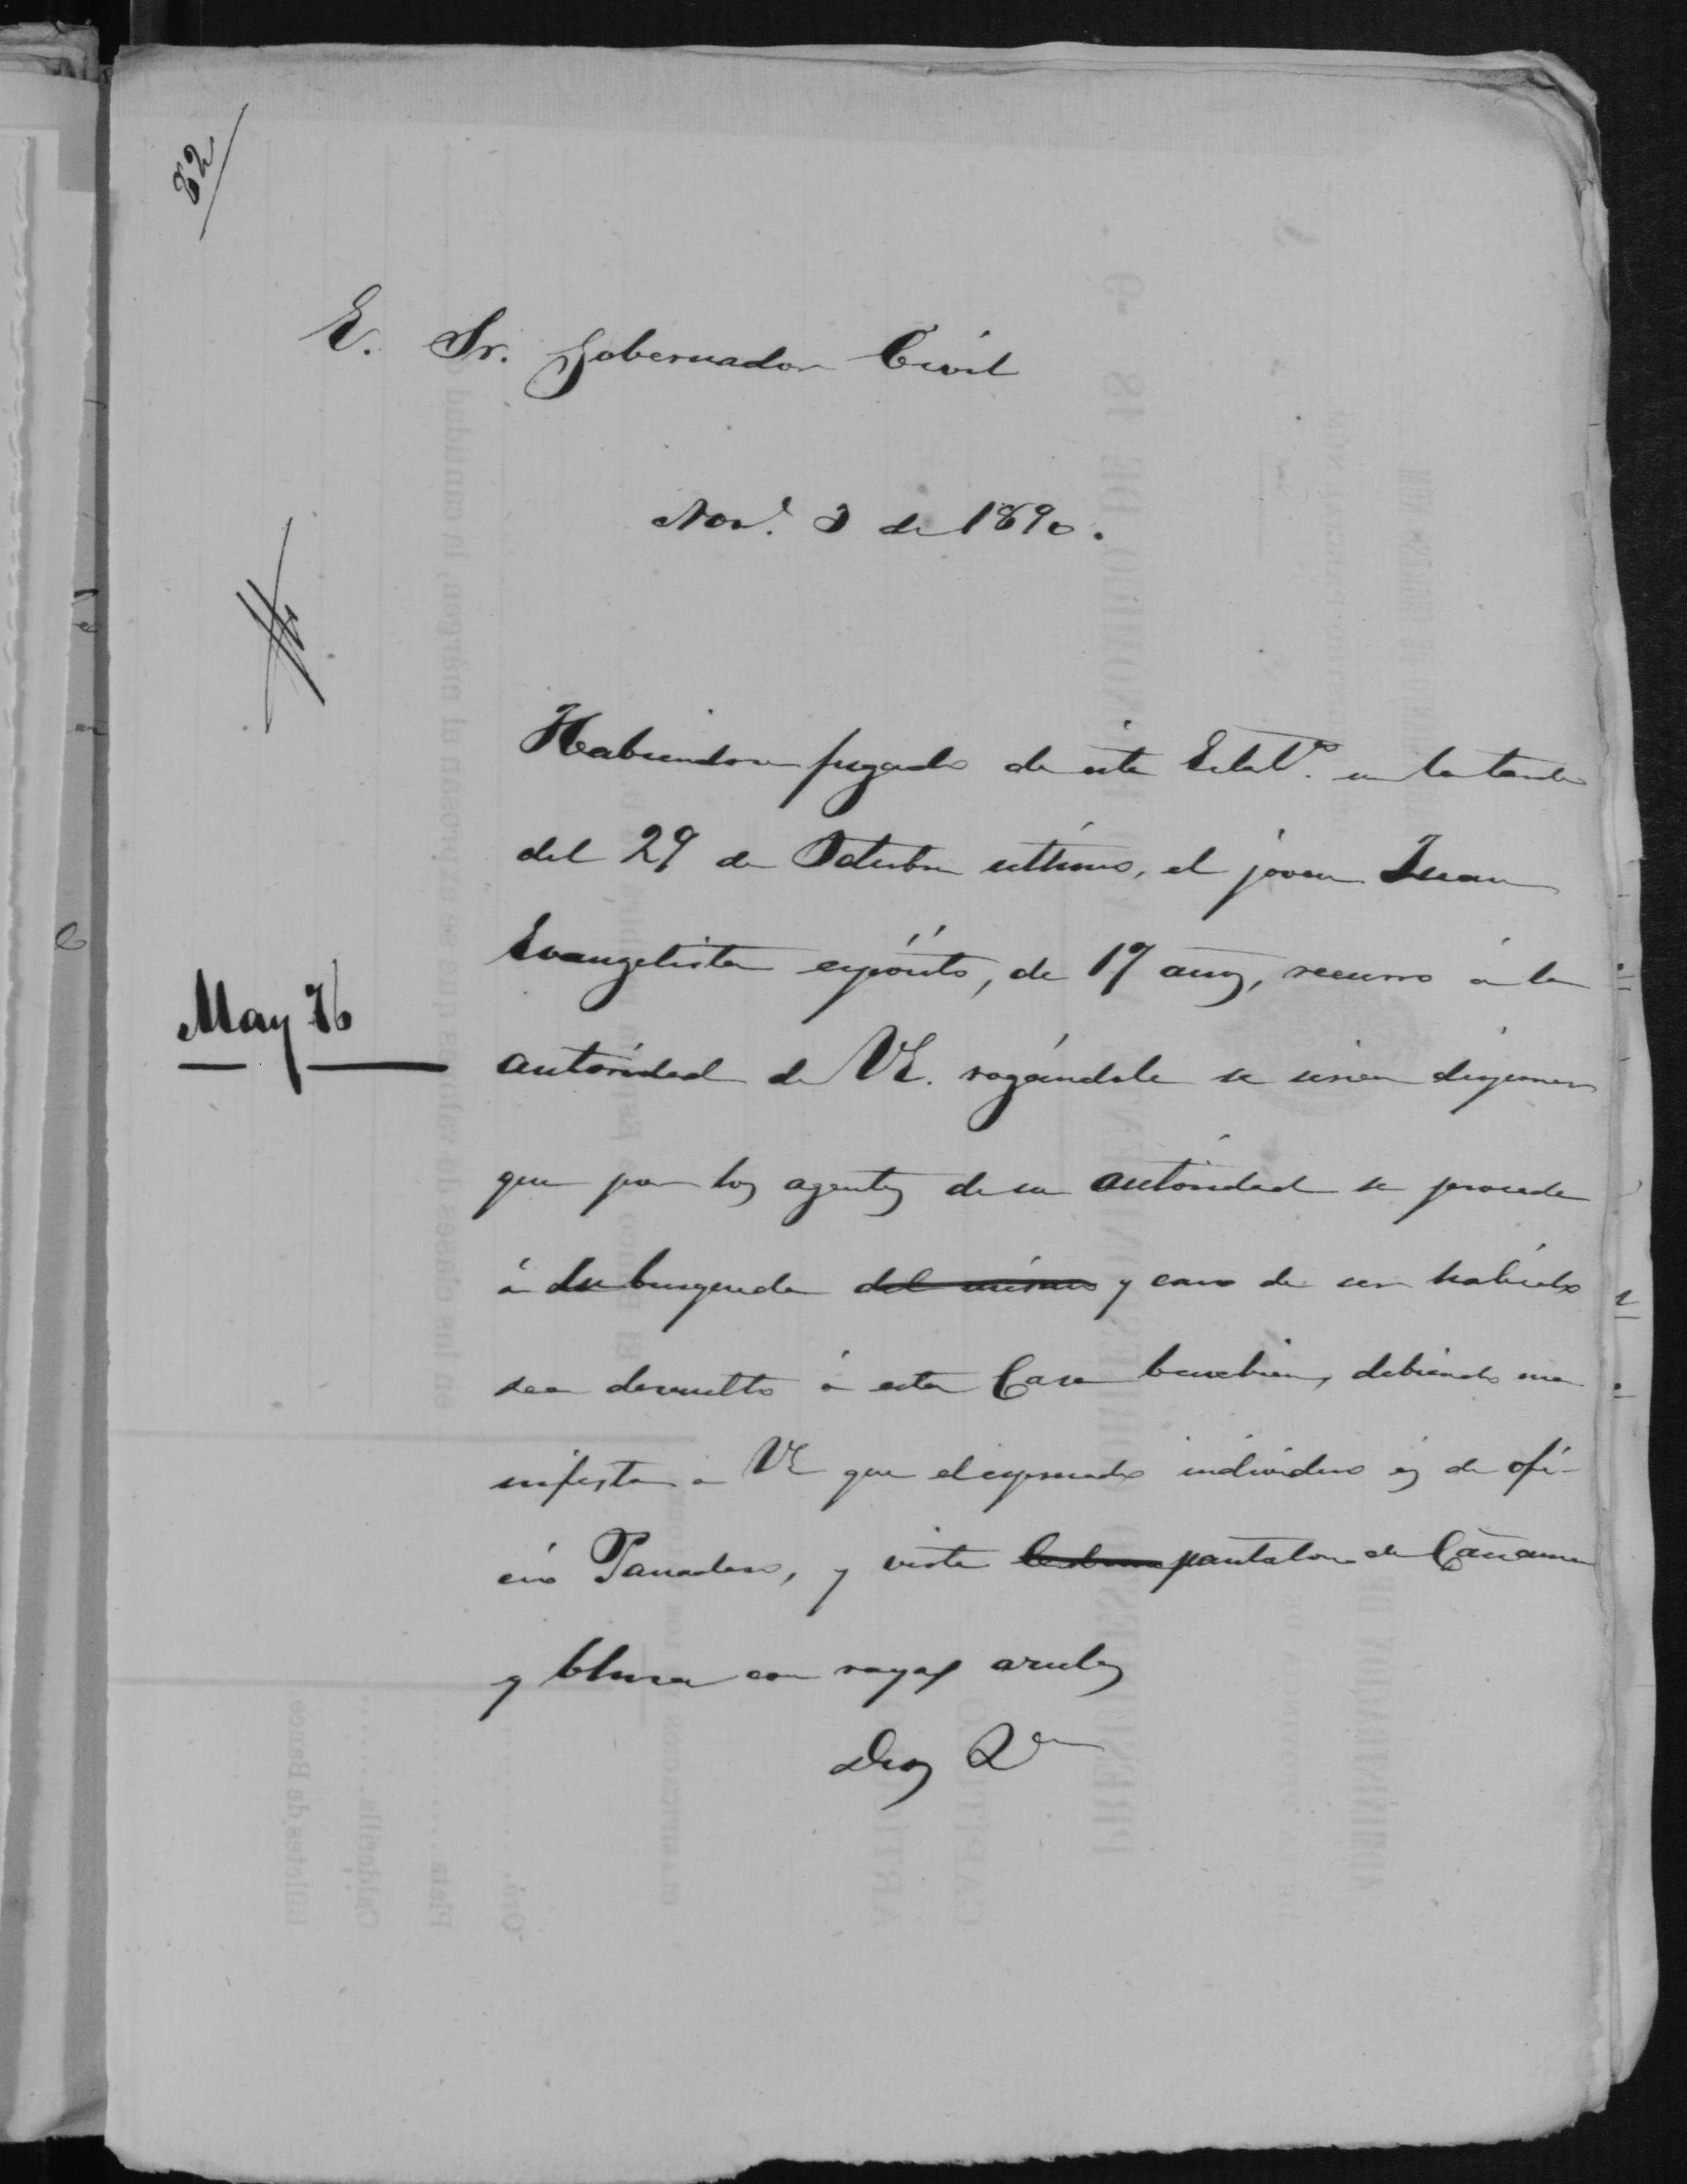 82
E. Sr. Gobernador Civil
Nov.e 3 de 1890.
Habiendose fugado de este Estabo. en la tarde
del 29 de Octubre ultimo, el jóven Juan
Evangelista expósito, de 17 años, recurro á la
May 76
autoridad de VE. rogándole se sirva disponer
que por los agentes de su autoridad se proceda
á su busqueda del mismo y caso de ser habido
sea devuelto á esta Casa benefica, debiendo ma
nifestar a VE que el expresado individuo es de ofi-
cio Panadero, y viste pantalon de Cáñamo
y blusa con rayas azules
Dios Qe